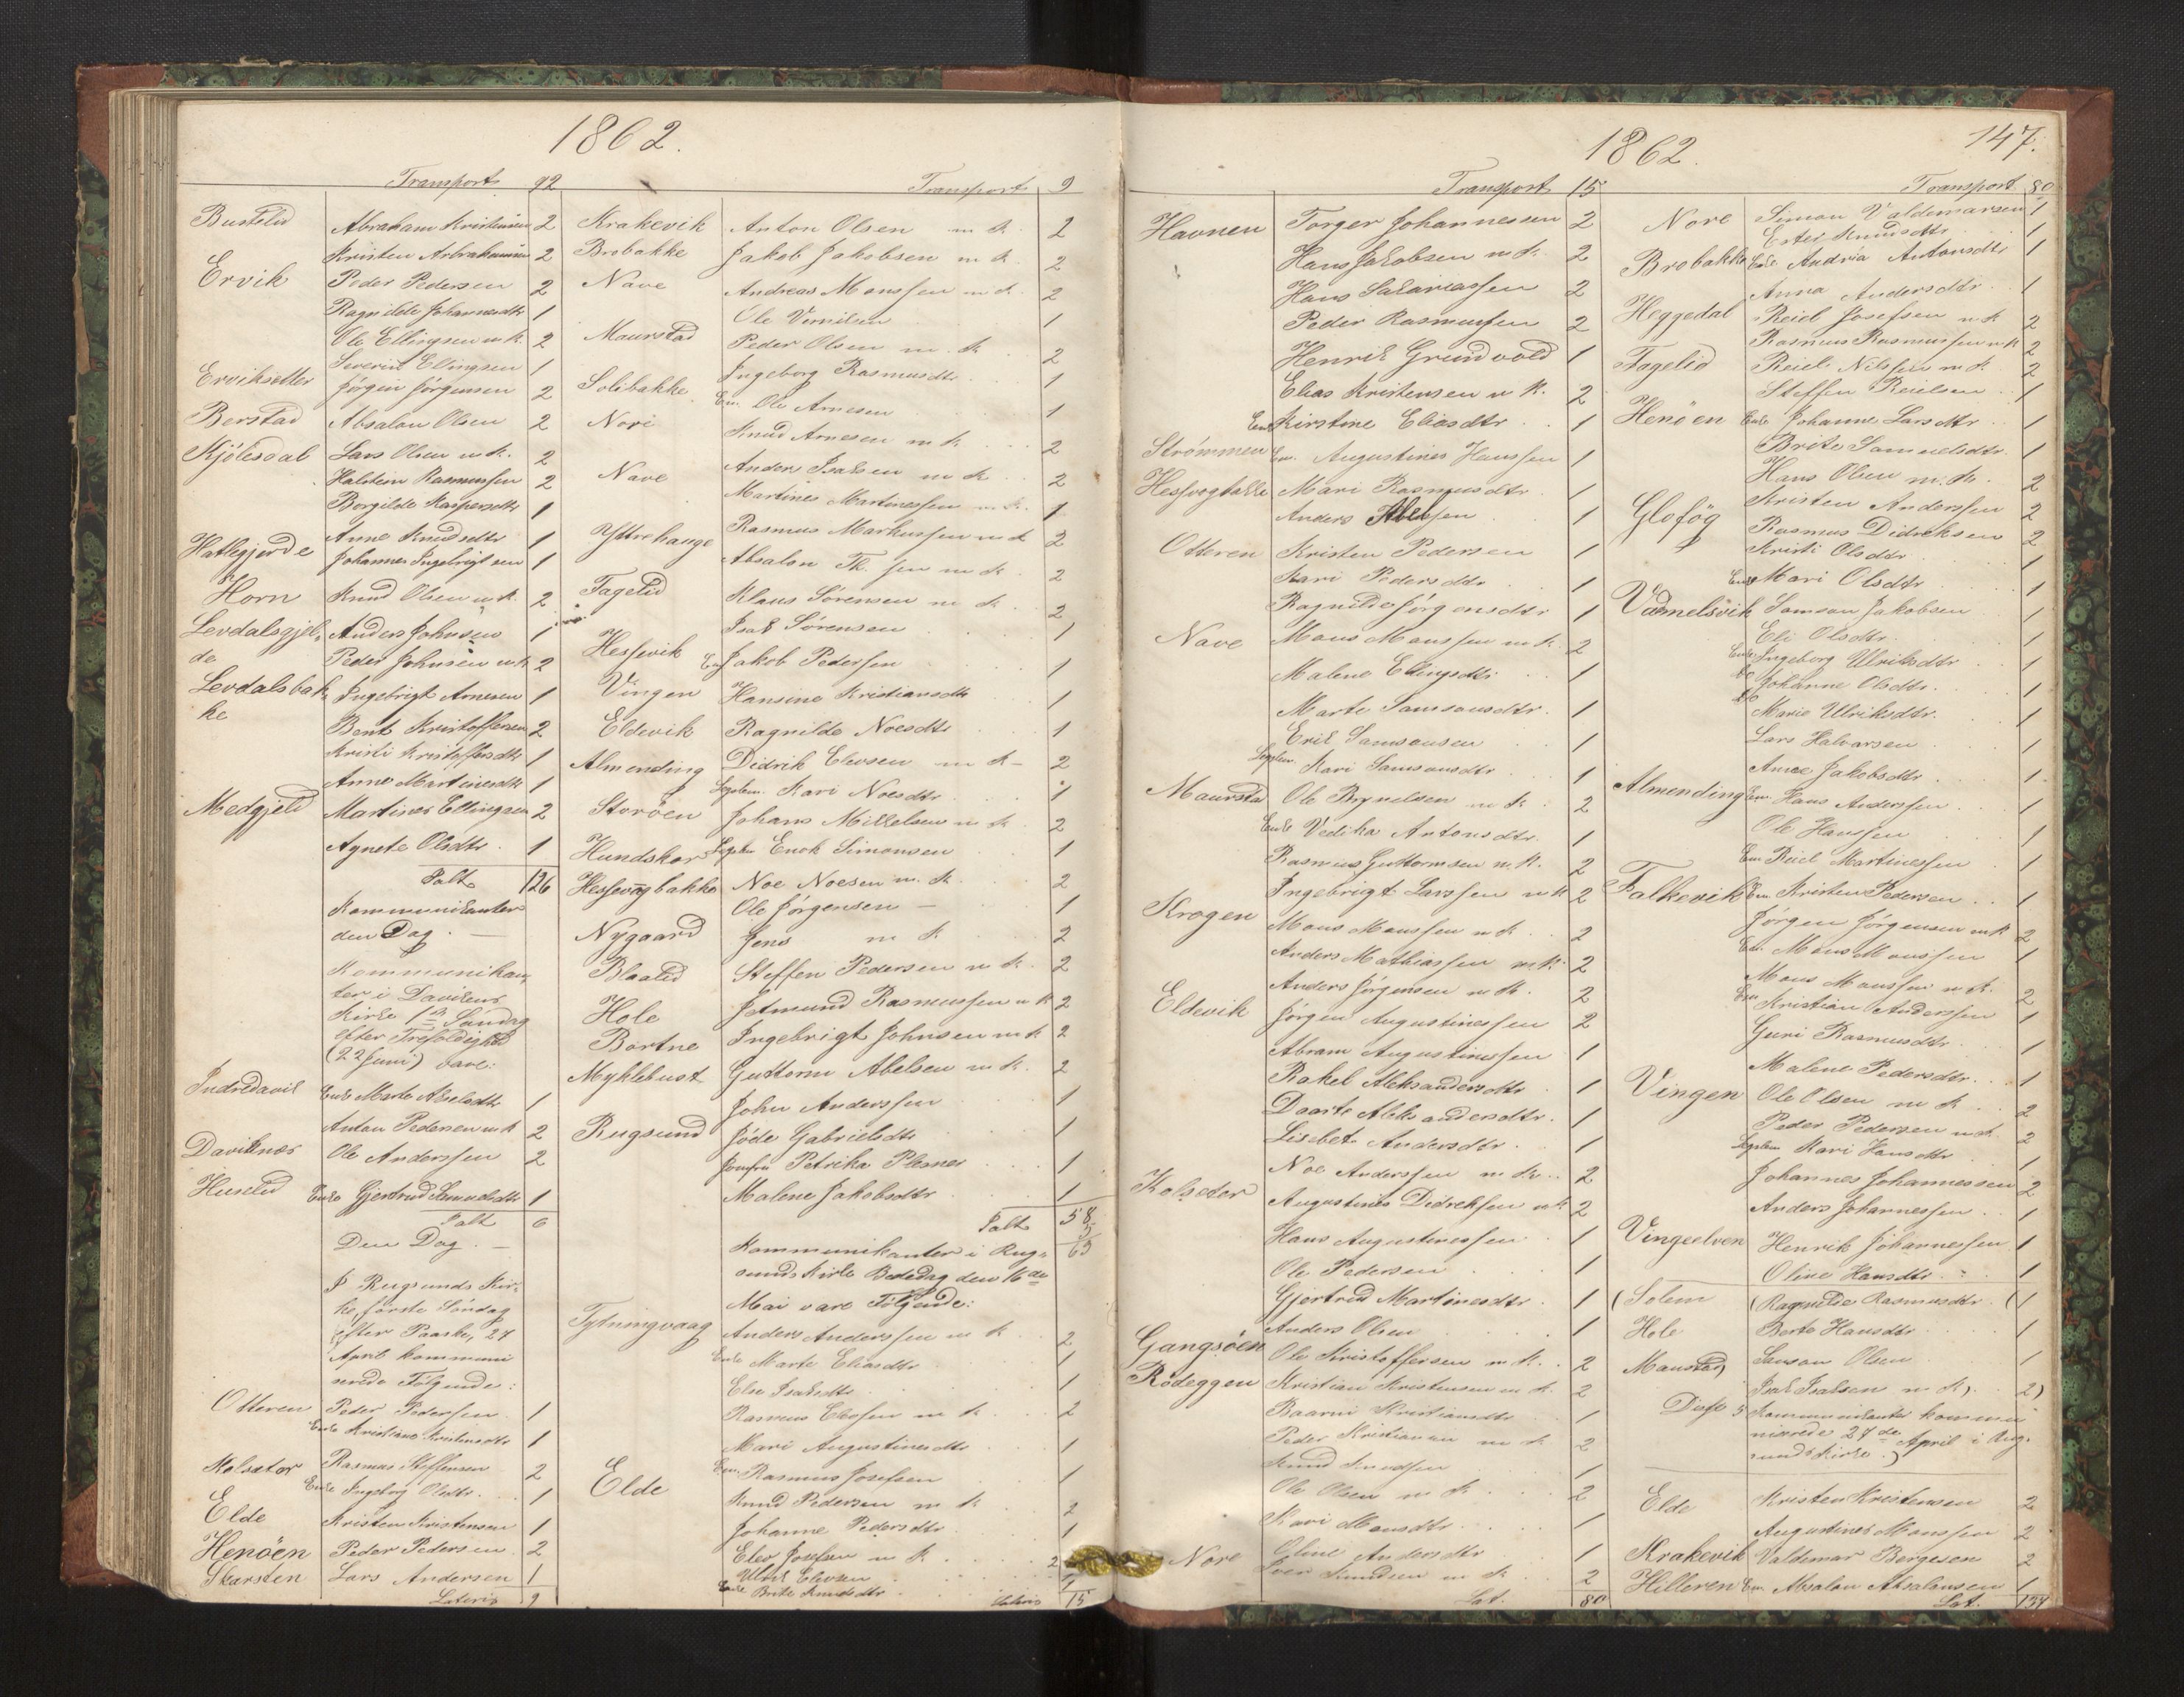 1862.
Transport 92
Bustelid Abraham Kristensen 2
Kristen Arbrahamsen 2
Ervik Peder Pedersen 2
Ragnilde Johannesdtr 1
Ole Ellingsen m K. 2
Severin Ellingsen 1
Erviksetter Jörgen Jörgensen 2
Berstad Absalon Olsen 2
Kjölesdal Lars Olsen m K. 2
Halstein Rasmussen 2
Borgilde Kaspersdtr 1
Hatlegjerde Anne Knudsdtr 1
Johannes Ingebrigtsen 1
Horn Knud Olsen m K. 2
Levdalsgjel- Anders Johnsen 1
de Peder Johnsen m K 2
Levdalsbak- Ingebrigt Arnesen 1
ke
Bent Kristoffersen 2
Kristi Kristoffersdtr 1
Anne Martinesdtr 1
Medgjeld Martines Ellingsen 2
Agnete Olsdtr. 1
Talt 126
Kommunikanter
den Dag. —
Kommunikan-
ter i Davikens
Kirke 1ste Söndag
efter Trefoldighed
(22 Juni) vare:
Indredavik Enke Marte Abelsdtr 1
Anton Pedersen m K 2
Daviknes Ole Anderssen 2
Huselid Enke Gjertrud Samuelsdtr 1
Talt 6
Den Dag. —
I Rugsunds Kir-
ke, förste Söndag
efter Paaske, 27
April kommuni
cerede Fölgende:
Otteren Peder Pedersen 1
Enke Kristiane Kristensdtr 1
Kolsetor Rasmus Steffensen 2
Enke Ingeborg Olsdtr. 1
Elde Kristen Kristensen 1
Henöen Peder Pedersen 2
Skarsten Lars Andersen 1
Lateris 9
Transport 9
Krakevik Anton Olsen m K. 2
Brobakke Jakob Jakobsen m K. 2
Nave Andreas Monssen m K. 2
Ole 1
Maurstad Peder Olsen m. K. 2
Ingeborg Rasmusdtr. 1
Solibakke Em. Ole Arnesen 1
Nori Knud Arnesen m K. 2
Nave Anders Isaksen m K. 2
Martines Martinessen m K. 1
Yttrehauge Rasmus Markussen m K 2
Absalon Th. sen m K. 2
Fagelid Klaus Sörensen m K. 2
Isak Sörensen 1
Hessevik Em Jakob Pedersen 1
Vingen Hansine Kristiansdtr 1
Eldevik Ragnilde Noesdtr 1
Almending Didrik Elevsen m K - 2
Legdlem. Kari Noesdtr. 1
Storöen Johans Mikkelsen m K. 2
Hundskor Legdlem Enok Simonsen 1
Hessevogbakke Noe Noesen m. K. 2
Ole Jörgensen — 1
Nygaard Jens m K. 2
Blaalid Steffen Pedersen m K. 2
Hole Asmund Rasmussen m K 2
Bortne Ingebrigt Johnsen m K 2
Myklebust Guttorm Abelsen m K. 2
John Anderssen 1
Rugsund Jöde Gabrielsdtr 1
Jomfru Petrika Plesner 1
Malene Jakobsdtr. 1
Talt 58
5
63
Kommunikanter i Rug-
sunds Kirke Bededag den 16de
Mai vare Fölgende:
Tytningvaag Anders Anderssen m K. 2
Enke Marte Eliasdtr. 1
Else Isaksdtr. 1
Rasmus Elevsen m K. 2
Mari Augustinesdtr. 1
Elde Em. Rasmus Josefsen 1
Knud Pedersen m K. 2
Johanne Pedersdtr. 1
Elev Josefsen m K. 2
Elevsen 1
Enke Brite Knudsdtr. 1
Lateris 15
1862. 147.
Transport 15
Havnen Torger Johannessen 2
Hans Jakobsen m K. 2
Hans Sakariassen 2
Peder Rasmussen 2
Henrik Grundvold 1
Elias Kristensen m K. 2
Enke Kirstine Eliasdtr. 1
Strömmen Em. Augustines Hanssen 1
Hessvogbakke Mari Rasmusdtr. 1
Anders Abelsen 1
Otteren Kristen Pedersen 1
Kari Pedersdtr. 1
Ragnilde Jörgensdtr 1
Nave Mons Monssen m K. 2
Malene Ellingsdtr. 1
Marte Samsonsdtr. 1
Erik Samsonsen 1
Legdlem. Kari Samsonsdtr. 1
Maurstad Ole Brynelsen m K. 2
Enke Vedika Antonsdtr. 1
Rasmus Guttormsen m K. 2
Ingebrigt Larssen m K 2
Krogen Mons Monssen m K. 2
Anders Mathiassen m K. 2
Anders Jörgensen m K. 2
Eldevik Jörgen Augustinessen 2
Abram Augustinessen 1
Rakel Aleksandersdtr. 1
Daarte Aleksandersdtr. 1
Lisebet Andersdtr. 1
Noe Anderssen m K. 2
Kolsetor Augustines Didreksen m K 2
Hans Augustinessen 1
Ole Pedersen 1
Gjertrud Martinesdtr. 1
Anders Olsen 1
Gangsöen Ole Kristoffersen m K. 2
Rödeggen Kristian Kristensen m K. 2
Baarni Kristiansdtr. 1
Peder Kristiansen m K. 2
Knud Knudsen 1
Ole Olsen m K. 2
Kari Monsdtr. 1
Nore Oline Andersdtr 1
Iver Knudsen m K. 2
Lat. 80
Transport 80
Nore Simon Valdemarsen 1
Ester Knudsdtr. 1
Brobakke Enke Andria Antonsdtr 1
Anna Andersdtr. 1
Heggedal Reiel Josefsen m K 2
Rasmus Rasmussen m K 2
Fagelid Reiel Nilssen m K. 2
Steffen Reielsen 1
Henöen Enke Johanne Larsdtr. 1
Brite Samuelsdtr. 1
Hans Olsen m. K. 2
Kristen Anderssen 2
Glofög Rasmus Didreksen 2
Kristi Olsdtr. 1
Enke Mari Olsdtr. 1
Vadmelsvik Samson Jakobsen 1
Eli Olsdtr. 1
Enke Ingeborg Ulriksdtr. 1
do Johanne Olsdtr. 1
do Marie Ulriksdtr. 1
Lars Halvarsen 1
Anne Jakobsdtr. 1
Almending Em. Hans Anderssen 1
Ole Hanssen 1
Em Reiel Martinessen 1
Falkevik Em. Kristen Pedersen 1
Jörgen Jörgensen m K 2
Em. Mons Monssen 1
Mons Monssen m K. 2
Em Kristian Anderssen 1
Guri Rasmusdtr. 1
Malene Pedersdtr. 1
Vingen Ole Olsen m K. 2
Peder Pedersen m K. 2
Legdlem Kari Hansdtr. 1
Johannes Johannessen 2
Anders Johannessen 1
Vingeelven Henrik Johannessen 1
Oline Hansdtr. 1
(Solem (Ragnilde Rasmusdtr. (1
Hole Berte Hansdtr. 1
Maurstad Samson Olsen 1
Isak Isaksen m K). 2)
Disse 5 Kommunikanter kommu
nicerede 27de April i Rug-
sunds Kirke.)
Elde Kristen Kristensen 2
Augustines Monssen 2
Krakevik Valdemar Borgesen 2
Hilleren Em Absalon Absalonsen 1
Lat. 137